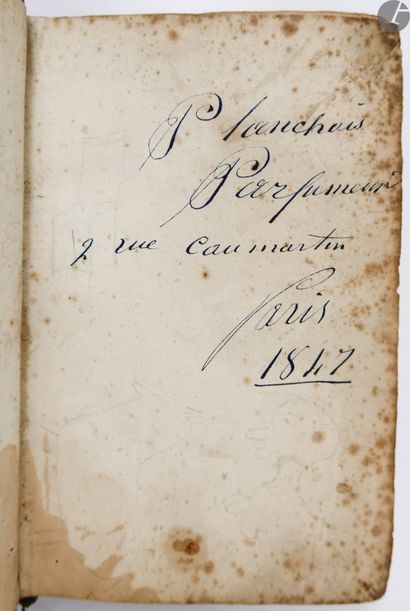 Planchais
Parfumeur
2 rue Caumartin
Paris
1847